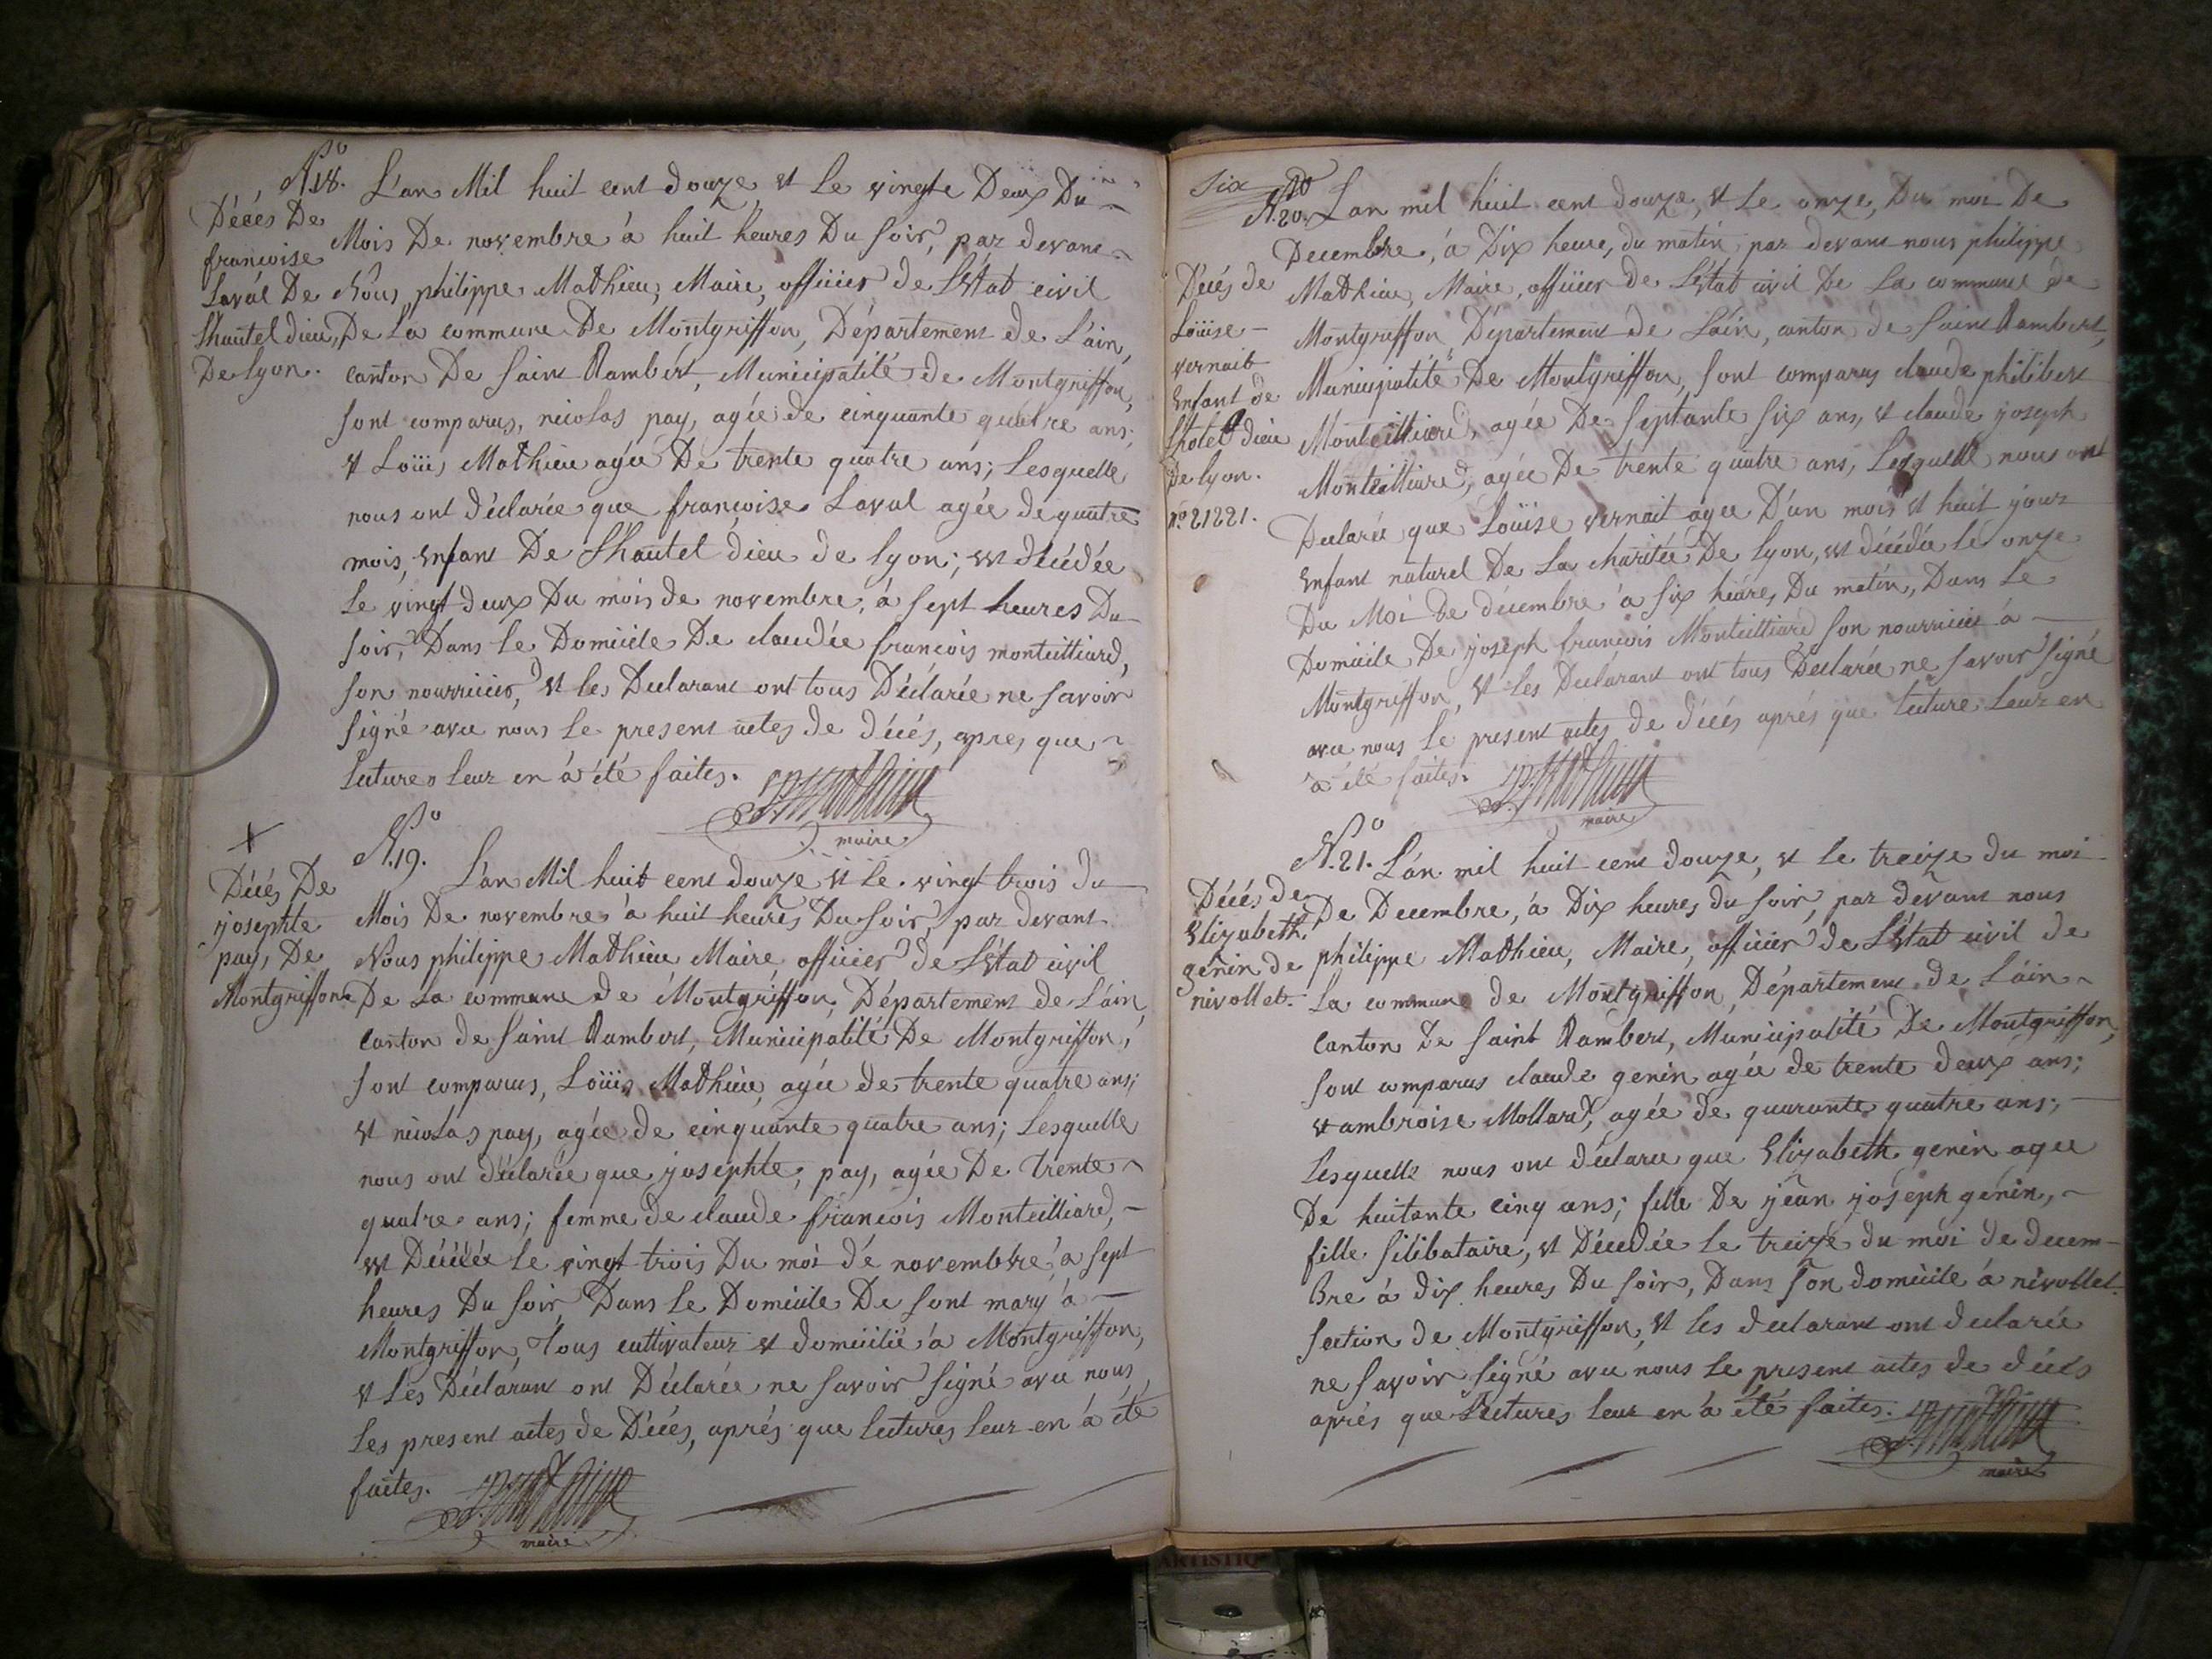 N.º 18.
Décès De
francoise
Laval De
Lhautel dieu,
De lyon.
L'an Mil huit cent douze et le vingte Deux Du
Mois De novembre à huit heures Du soir, par devant
Nous philippe Mathieu, Maire, officier de L'état civil
De La commune De Montgriffon, Département de L'ain,
canton De saint Rambert, Municipalité de Montgriffon,
sont comparus, nicolas pay, agée de cinquante quatre ans;
et Loüis Mathieu agée De trente quatre ans; Lesquelle
nous ont déclarée que francoise Laval agée de quatre
mois, enfant De Lhautel dieu de lyon; est décédée
le vingt deux Du mois de novembre, à sept heures Du
soir, Dans le Domicile De claudée francois monteilliard,
son nourricier, et les Declarant ont tous Déclarée ne savoir
signé avec nous le present actes de décés, apres que
lectures leur en à été faites.
maire
N.º 19.
Décés De
josephte
pay, De
Montgriffon
L'an Mil huit cent douze et le vingt trois du
Mois De novembre à huit heures Du soir, par devant
Nous philippe Mathieu Maire officier de L'état civil
De La commune de Montgriffon, Département de L'ain,
canton de saint Rambert, Municipalité De Montgriffon,
sont comparus, Loüis Mathieu, agée de trente quatre ans;
et nicolas pay, agée de cinquante quatre ans; Lesquelle
nous ont déclarée que josephte, pay, agée De trente
quatre ans; femme de claude francois Monteilliard,
est Décédée le vingt trois Du moi dé novembre à sept
heures Du soir Dans le Domicile De sont mary à
Montgriffon, Tous cultivateur et domicilié à Montgriffon,
et Les Déclarant ont Déclarée ne savoir signé avec nous
Les present actes de Décés, aprés que lectures leur en à été
faites.
maire
Six
N.º 20.
Décés de
Loüise
vernait
Enfant de
Lhotel dieu
De lyon.
nº 21221.
L'an mil huit cent douze, et Le onze, Du moi De
Decembre, à Dix heure, du matin, par devant nous philippe
Mathieu, Maire, officier de L'état civil De La commune de
Montgriffon Département de L'ain, canton de saint Rambert,
Municipalité De Montgriffon, sont comparus claude philibert
Monteilliard, agée De septante six ans, et claude joseph
Monteilliard, agée De trente quatre ans, Lesquelle nous ont
Declarée que Loüise vernait agee D'un mois et huit jour
Enfant naturel De La charitée De lyon, est décédée le onze
Du Moi De décembre à six heures Du matin, Dans Le
Domicile De joseph francois Monteilliard son nourricier à
Montgriffon, et les Déclarant ont tous Declarée ne savoir signé
avec nous le present actes de décés aprés que lecture leur en
à été faites.
maire
N.º 21.
Décés de
Elizabeth
genin de
nivollet.
L'an mil huit cent douze, et le treize du moi
De Decembre, à Dix heures du soir, par devant nous
philippe Mathieu, Maire, officier de L'état civil de
La commune de Montgriffon Département de L'ain
canton De saint Rambert, Municipalité De Montgriffon,
sont comparus claude genin agée de trente deux ans;
et ambroise Mollard, agée de quarante quatre ans;
Lesquelle nous ont déclarée que Elizabeth genin agee
De huitante cinq ans; fille De jean joseph genin,
fille silibataire, et Décédée le treize du moi de decem-
bre à dix heures Du soir, Dans son domicile à nivollet
section de Montgriffon, et les declarant ont declarée
ne savoir signé avec nous le present actes de décés
aprés que Lectures leur en à été faites.
maire